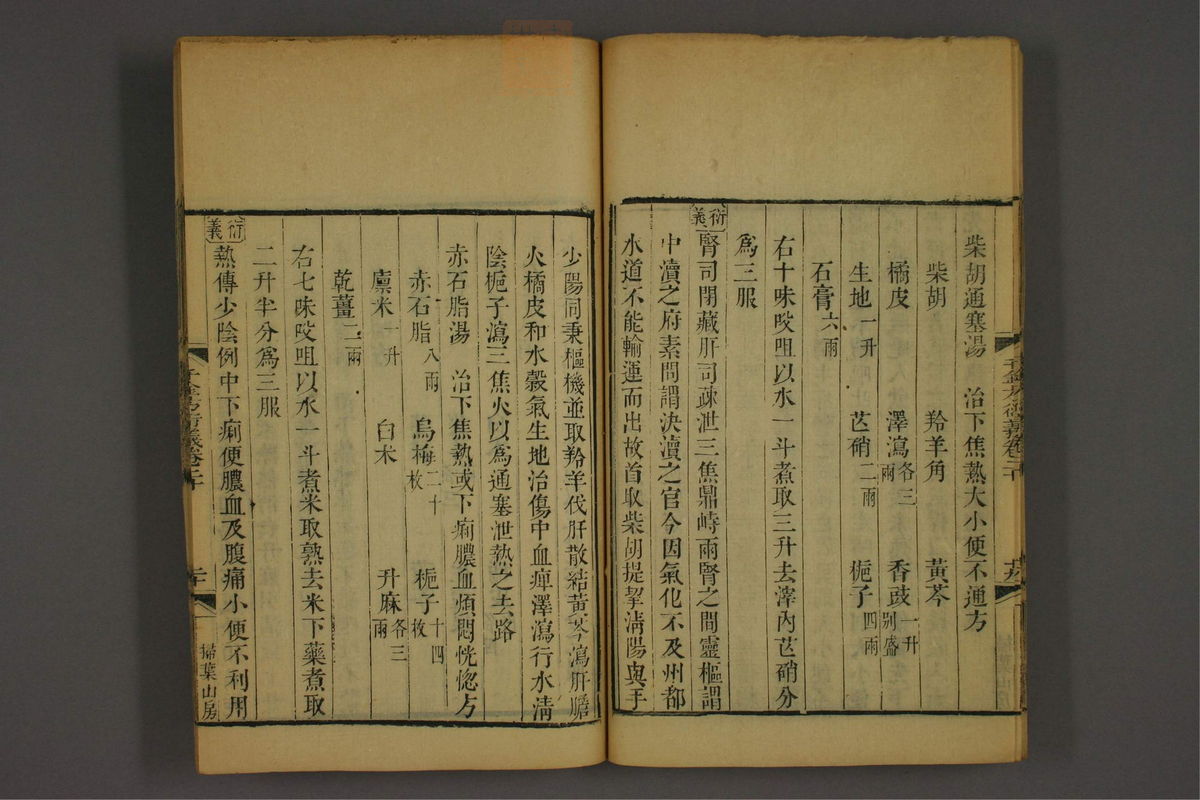 柴胡通塞湯　治下焦熱大小便不通方
柴胡　羚羊角　黃芩
橘皮　澤瀉各三兩　香豉一升別盛
生地一升　芒硝二兩　梔子四兩
石膏六兩
右十味㕮咀以水一斗煮取三升去滓內芒硝分
爲三服
衍義
腎司閉藏肝司疎泄三焦鼎峙兩腎之間靈樞謂
中瀆之府素問謂決瀆之官今因氣化不及州都
水道不能輸運而出故首取柴胡提挈淸陽與手
少陽同秉樞機並取羚羊伐肝散結黃芩瀉肝膽
火橘皮和水穀氣生地治傷中血痺澤瀉行水淸
陰梔子瀉三焦火以爲通塞泄熱之去路
赤石脂湯　治下焦熱或下痢膿血煩悶恍惚方
赤石脂八兩　烏梅二十枚　梔子十四枚
廩米一升　白朮　升麻各三兩
乾薑二兩
右七味㕮咀以水一斗煮米取熟去米下藥煮取
二升半分爲三服
衍義
熱傳少陰例中下痢便膿血及腹痛小便不利用
千金方衍義卷二十
掃葉山房